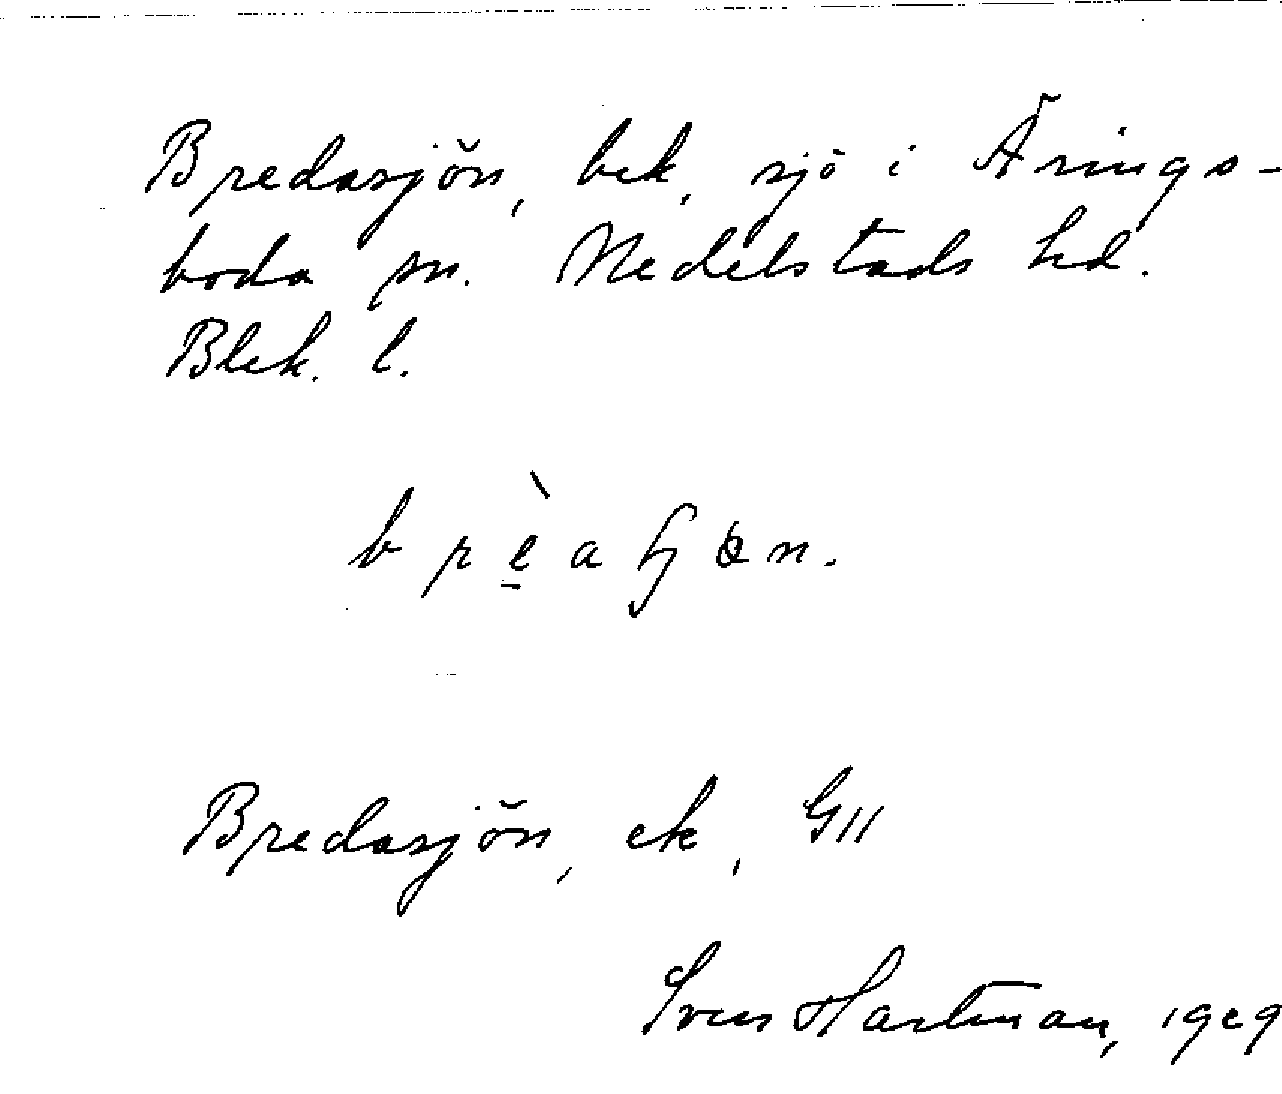 Bredasjön, bek, sjö i Årings-
boda sn. Medelstads hd.
Blek. l.
Bredasjön, ek, GII
Sven Hartman, 1929